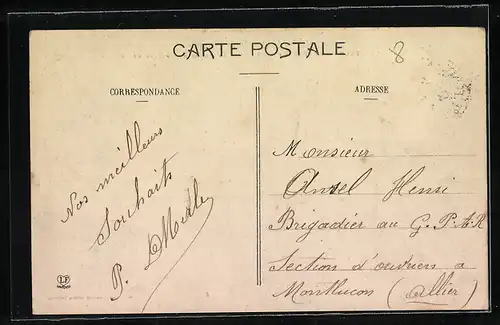 CARTE POSTALE
8
CORRESPONDANCE
ADRESSE
Nos meilleurs
Souhaits
P. Merle
Monsieur
Ansel Henri
Brigadier au G.P.A.R
Section d'ouvriers a
Montlucon (Allier)